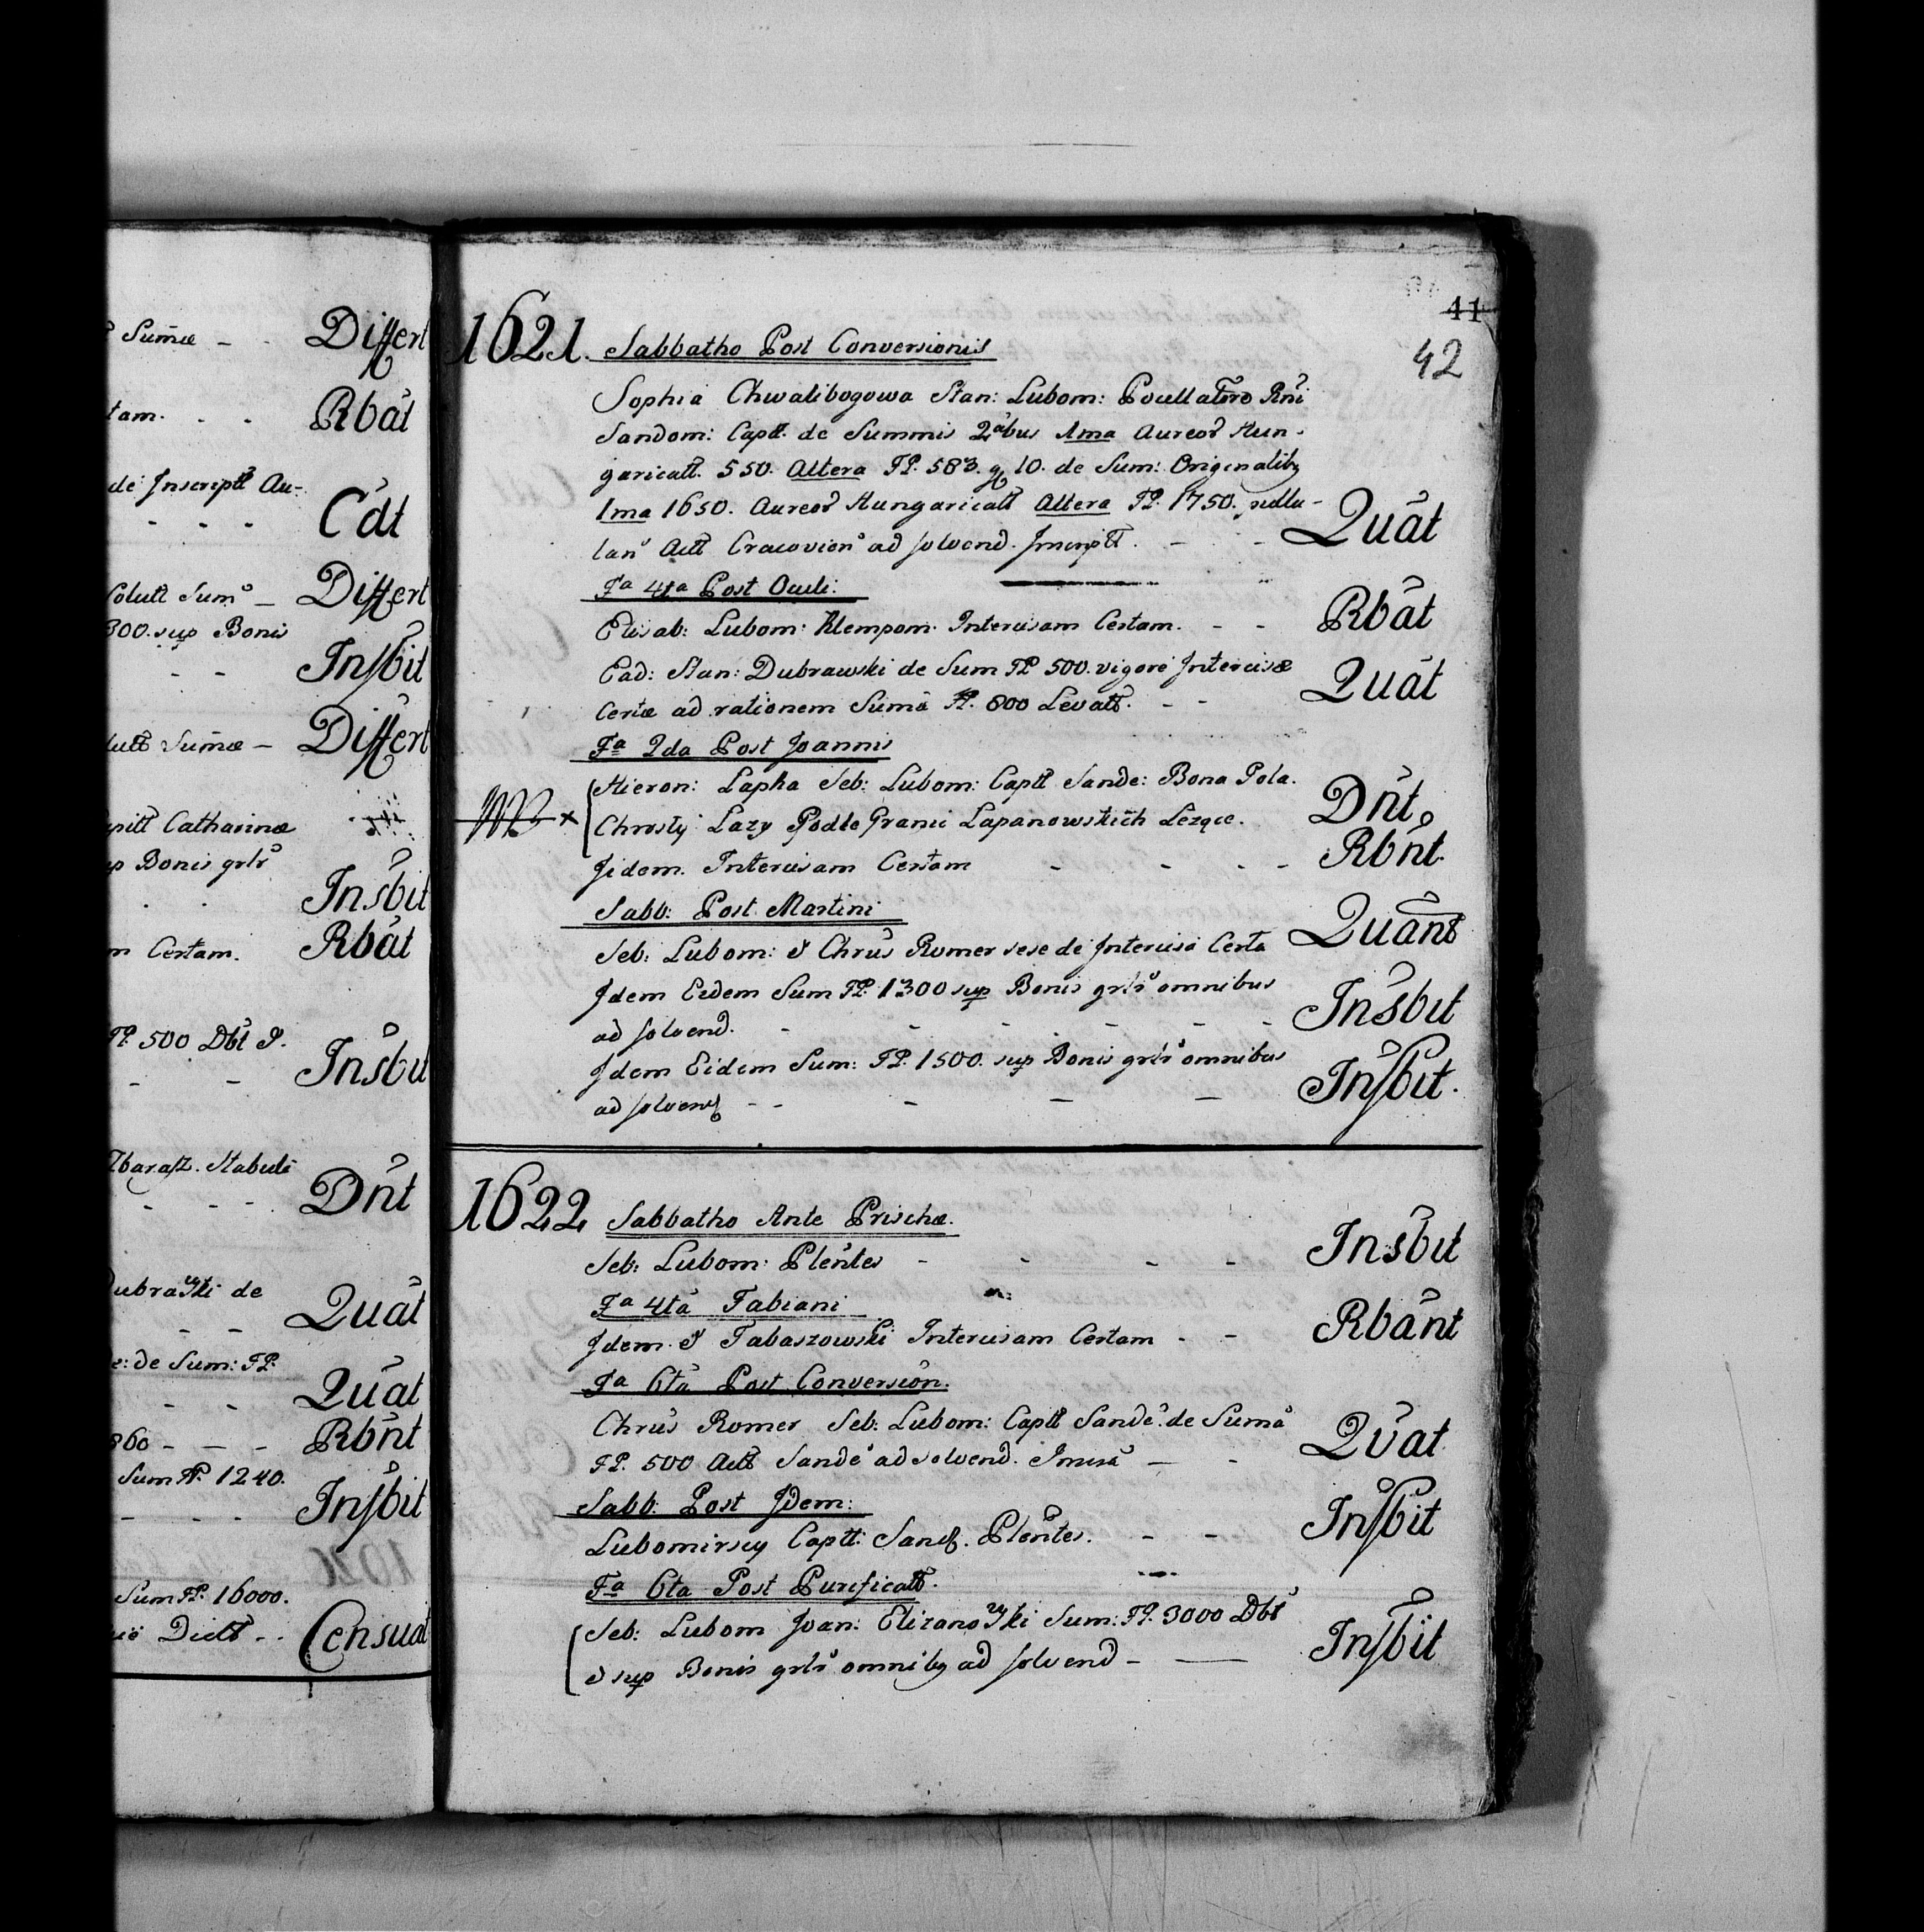 Sumæ - - Differt
tam. - - Rbāt
de Inscriptt Au-
- - - Cdt
Solutt Sum - Differt
300. sup Bonis
- - Insbit
lutt Sumæ - Differt
Catharinæ
Bonis grlr
. . Insbit
Certam. Rbāt
FP. 500 Dbt &.
- - Insbit
Zbarasz. Stabuli
- - - Dnt
de
- - Quāt
de Sum: FP.
- - Quāt
860 - - - Rbnt
Sum FP. 1240.
- - - Insbit
Sum FP. 16000.
Dictt - - Censuat
41
42
1621. Sabbatho Post Conversionis
Sophia Chwalibogowa Stan: Lubom: Rni
Sandom: Captt. de Summis 2abus 1ma Aureor Hun-
garicatt. 550. Altera FP. 583. g 10. de Sum: Originalibq
1ma 1650. Aureor Hungaricatt Altera FP. 1750.
Actt Cracovien ad solvend. Inscriptt. - - - Quāt
Fa 4ta Post Oculi:
Elisab: Lubom: Intercisam Certam. - - Rbāt
Ead: Stan: Dubrawski de Sum FP 500. vigore Intercisæ
Certæ ad rationem Sumā FP. 800 Levatt. - - Quāt
Fa 2da Post Joannis
Hieron: Lapka Seb: Lubom: Captt Sande: Bona Pola.
Chrosty Lazy Podle Granic Lapanowskich Lezące. Dnt
Jidem. Intercisam Certam - - - - Rbnt.
Sabb: Post Martini
Seb: Lubom: & Chrūs Romer sese de Intercisa Certa Quānt
Jdem Eidem Sum FP. 1300 sup Bonis grlr omnibus
ad solvend. - - - - - Insbit
Jdem Eidem Sum: FP. 1500. sup Bonis grlr omnibus
ad solvend - - - - - Insbit.
1622 Sabbatho Ante Priscæ.
Seb: Lubom: Plentes - - - - Insbit
Fa 4ta Fabiani
Jdem. & Tabaszowski Intercisam Certam - - Rbānt
Fa 6ta Post Conversion.
Chrūs Romer Seb: Lubom: Captt Sande: de Sumā
FP. 500 Actt Sande ad solvend. - - Qvāt
Sabb: Post Jdem:
Lubomirscy Captt: Sand. Plentes. - - Insbit
Fa 6ta Post Purificatt.
Seb: Lubom Joan: Sum: FP. 3000 Dbt
& sup Bonis grlr omnibq ad solvend - — Insbit